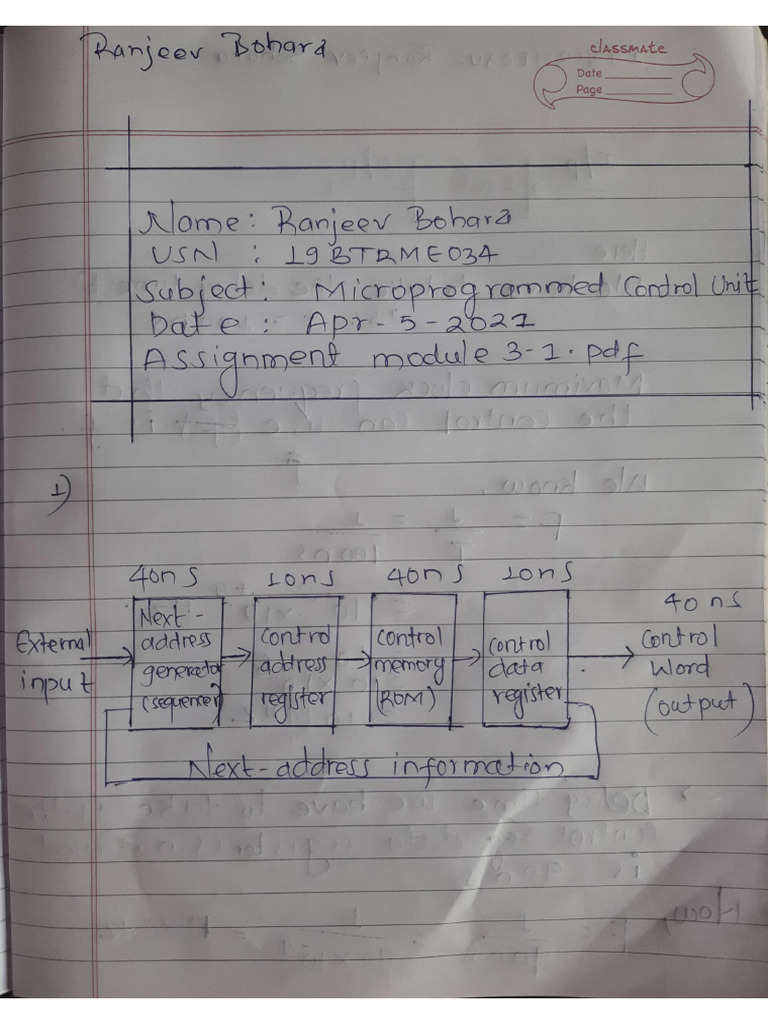 Ranjeev Bohara
classmate
Date
Page
Name: Ranjeev Bohara
USN : 19BTRME034
Subject: Microprogrammed Control Unit
Date : Apr-5-2021
Assignment module 3-1.pdf
1)
40ns 10ns 40ns 10ns
40 ns
External
input
Next-
address
generator
(sequencer)
Control
address
register
Control
memory
(ROM)
Control
data
register
Control
Word
(output)
Next-address information